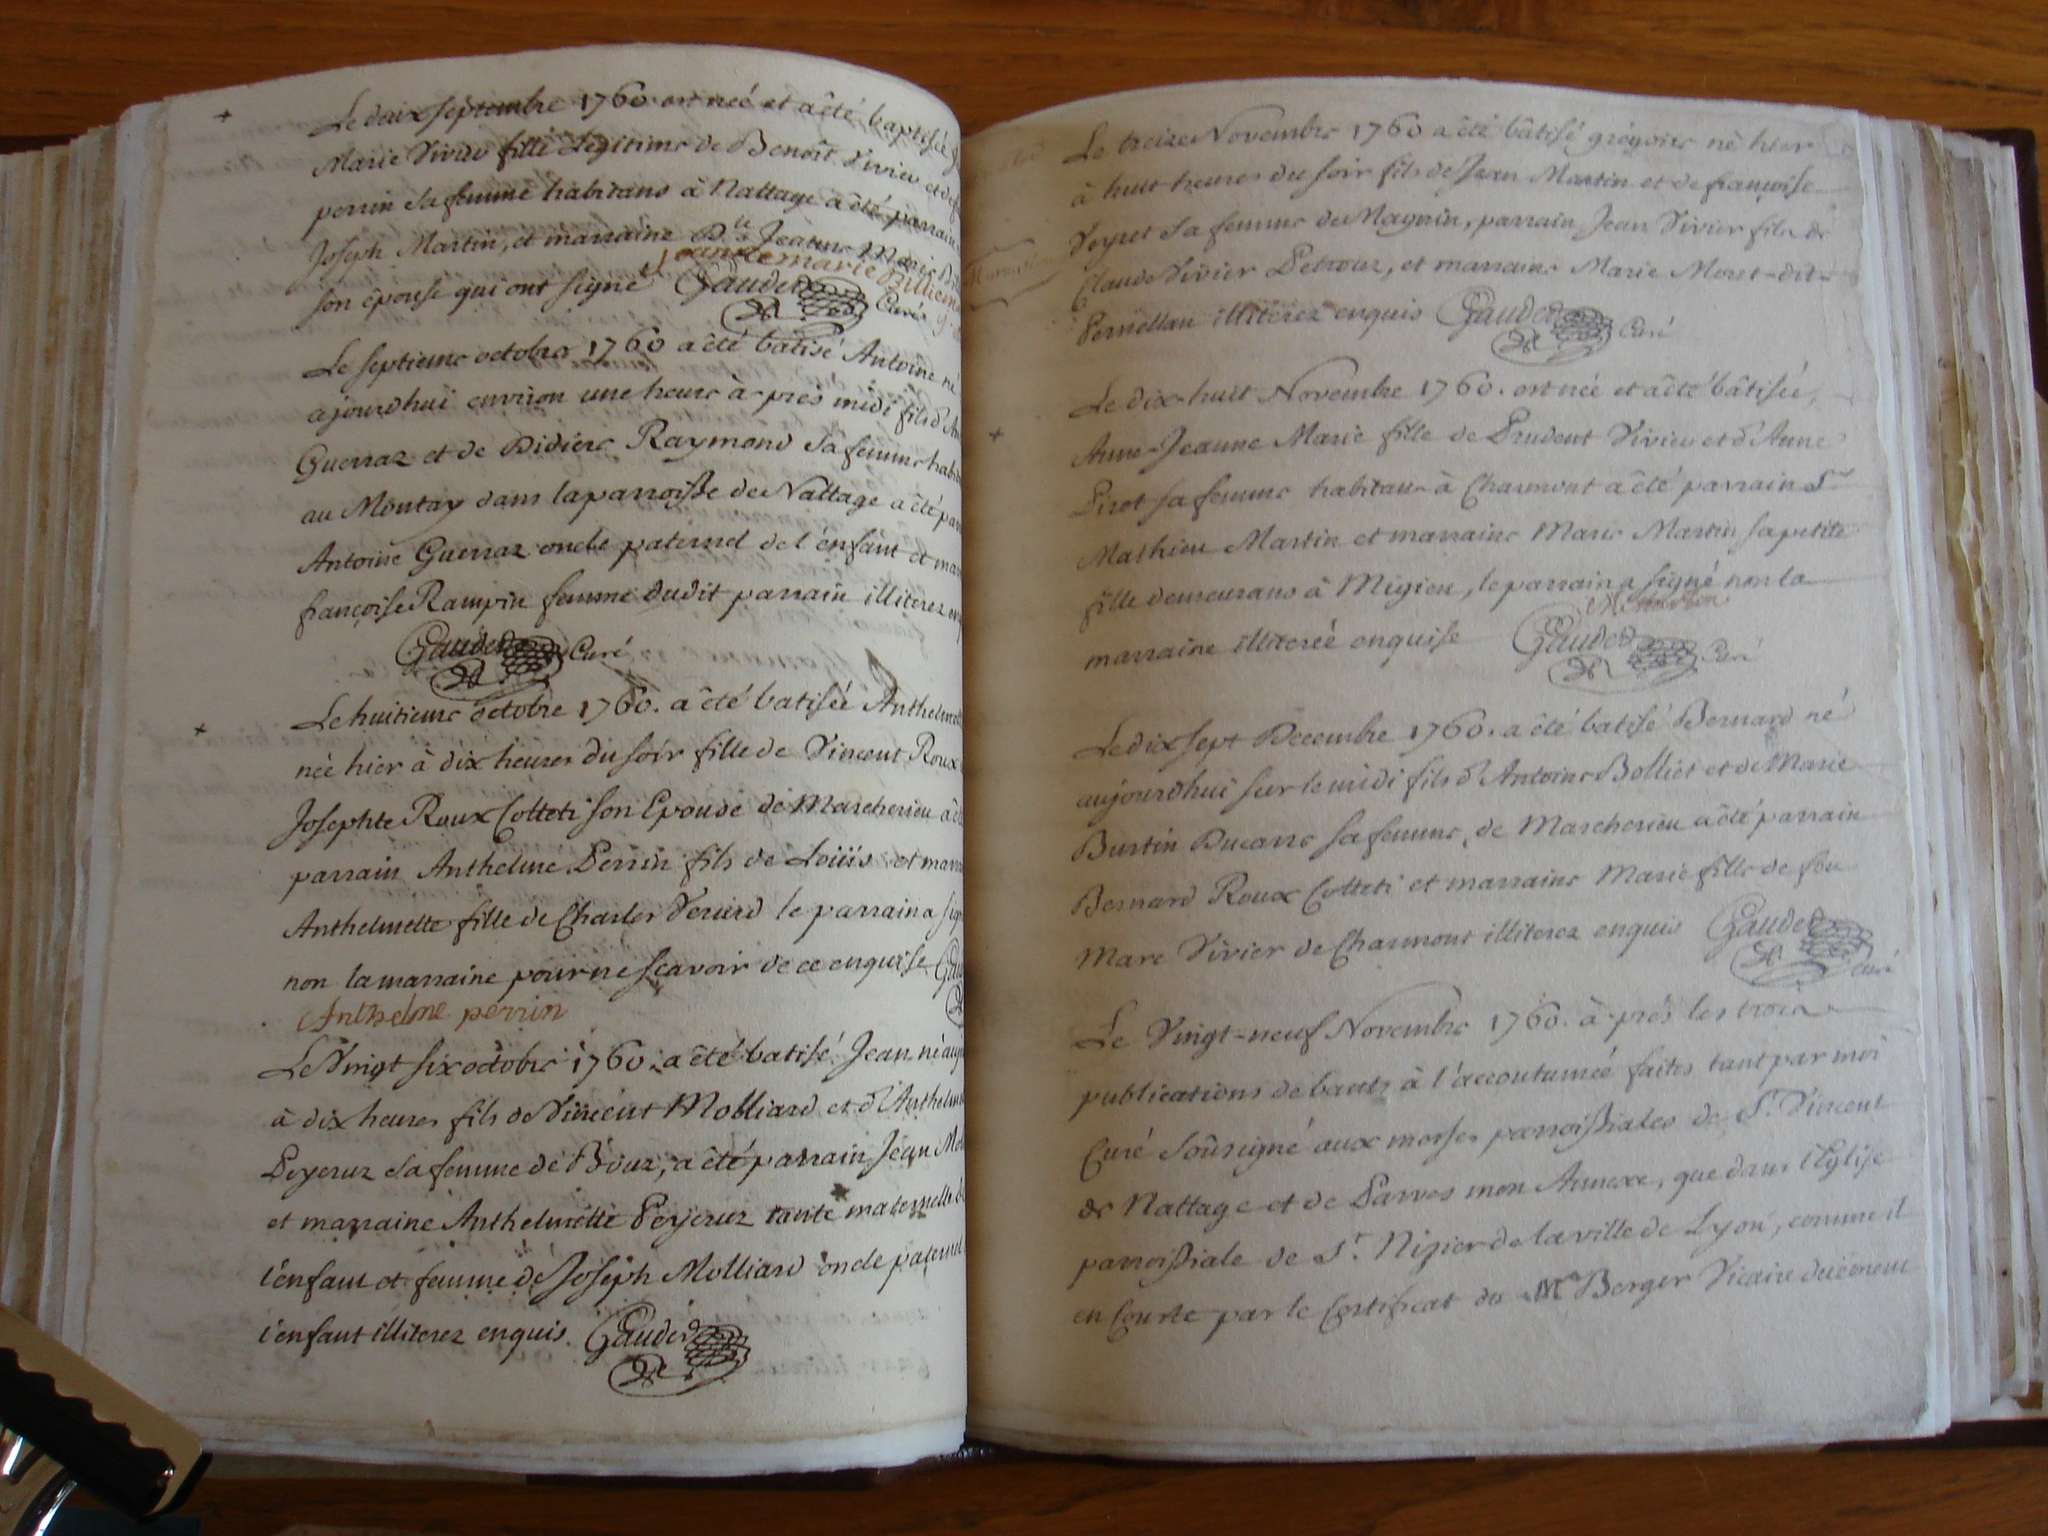 Le deix septembre 1760 est neé et a êté baptisée
Marie Vivier fille Légitime de Benoît Vivier et de
perrin sa femme habitans à Nattage a êté parrain
Joseph Martin, et marraine D.lle Jeanne Marie
Jeanne marie Billiem
son épouse qui ont signé Gaudet Curé
Le septieme octobre 1760 a êté batisé Antoine né
ajourdhui environ une heure à-près midi fils d'
Guerraz et de Didiere Raymond sa femme
au Montay dans la parroisse de Nattage a êté
Antoine Guerraz oncle paternel de l'enfant et
françoise Rampin femme dudit parrain illiterez
Gaudet Curé
Le huitieme octobre 1760. a êté batisée
née hier à dix heures du soir fille de Vincent Roux
Josephte Roux Colleti son Epouse de Marcherieu
parrain Anthelme Perrin fils de Loüis et
Anthelmette fille de Charles Verard le parrain a
non la marraine pour ne sçavoir de ce enquise
Anthelme perrin
Le Vingt six octobre 1760. a êté batisé Jean né
à dix heures fils de Vincent Molliard et d'
Peyeruz sa femme de Bouz, a êté parrain Jean
et marraine Anthelmette Peyeruz tante maternelle
l'enfant et femme de Joseph Molliard oncle
l'enfant illiterez enquis. Gaudet
Le treize Novembre 1760 a êté bâtisé grégoire né hier
à huit heures du soir fils de Jean Martin et de françoise
Veyret sa femme de Nagnin, parrain Jean Vivier fils de
Claude Vivier Petrouz, et marraine Marie Moret-dit-
Pernellan illiterez enquis Gaudet Curé
Le dix-huit Novembre 1760. est née et a êté bâtisée,
Anne-Jeanne Marie fille de Prudent Vivier et d'Anne
Pirot sa femme habitans à Charmont a êté parrain Sr
Mathieu Martin et marraine Marie Martin sa petite
fille demeurans à Migieu, le parrain a signé non la
M Martin
marraine illiterée enquise Gaudet Curé
Le dix sept Decembre 1760. a êté batisé Bernard né
aujourdhui sur le midi fils d'Antoine Bolliet et de Marie
Burtin Ducarre sa femme, de Marcherieu a êté parrain
Bernard Roux Colleti et marraine Marie fille de feu
Marc Vivier de Charmont illiterez enquis Gaudet
Curé
Le Vingt-neuf Novembre 1760. à-près les trois
publications de bans à l'accoutumée faites tant par moi
Curé soûsigné aux messes parroissiales de St. Vincent
de Nattage et de Parves mon Annexe, que dans l'Eglise
parroissiale de St. Nizier de la ville de Lyon, comme il
en Conste par le Certificat de Mr. Berger Vicaire